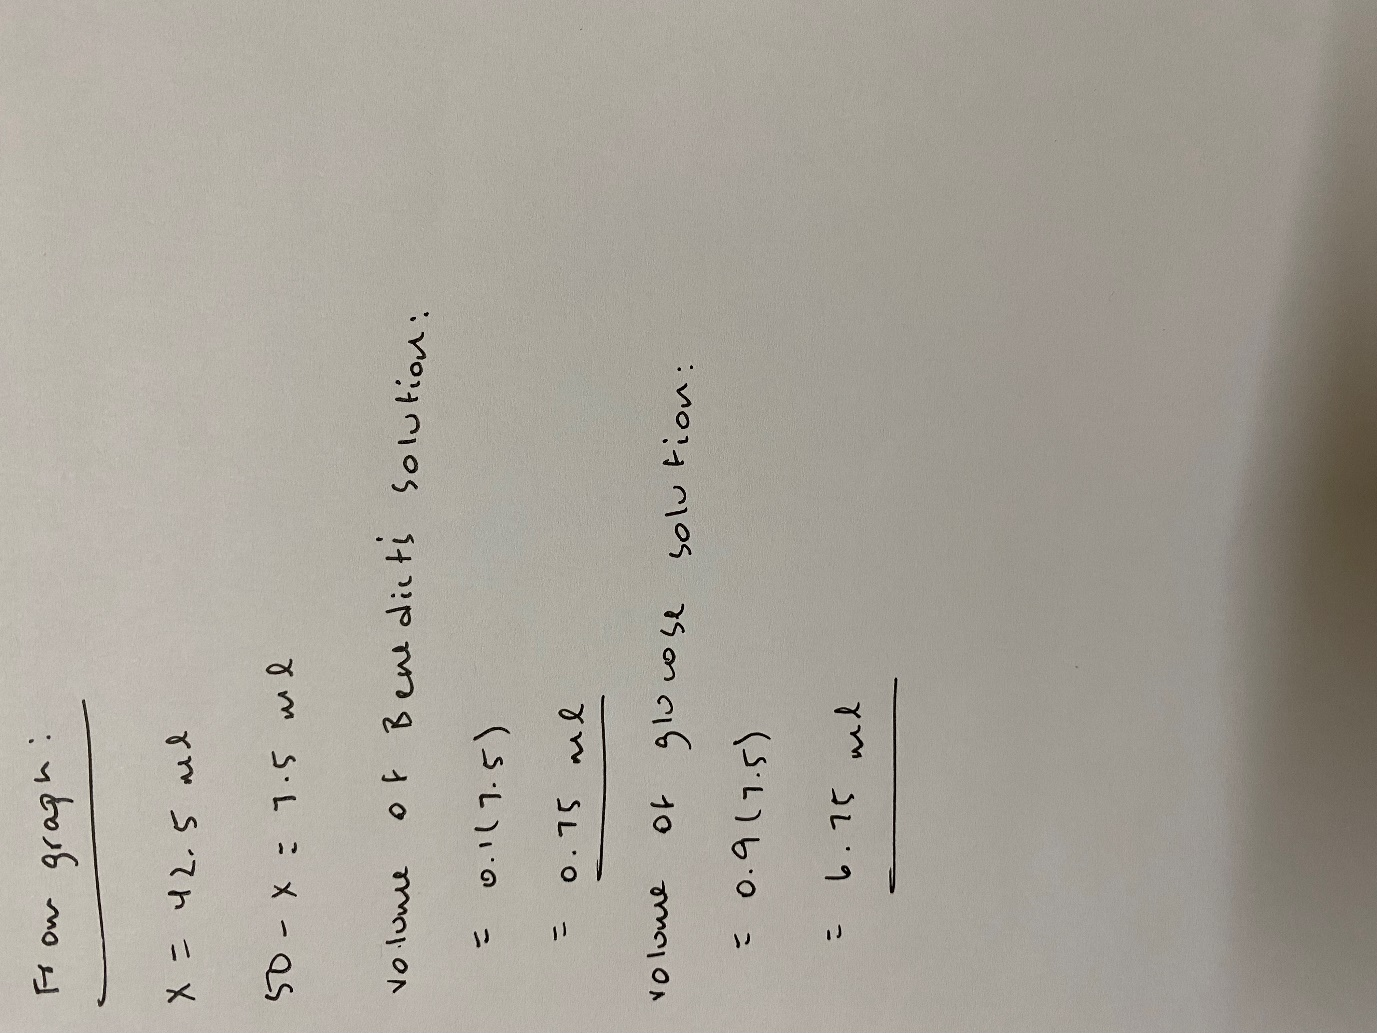 From graph:
x = 42.5 ml
50 - x = 7.5 ml
volume of Benedict's solution:
= 0.1(7.5)
= 0.75 ml
volume of glucose solution:
= 0.9(7.5)
= 6.75 ml